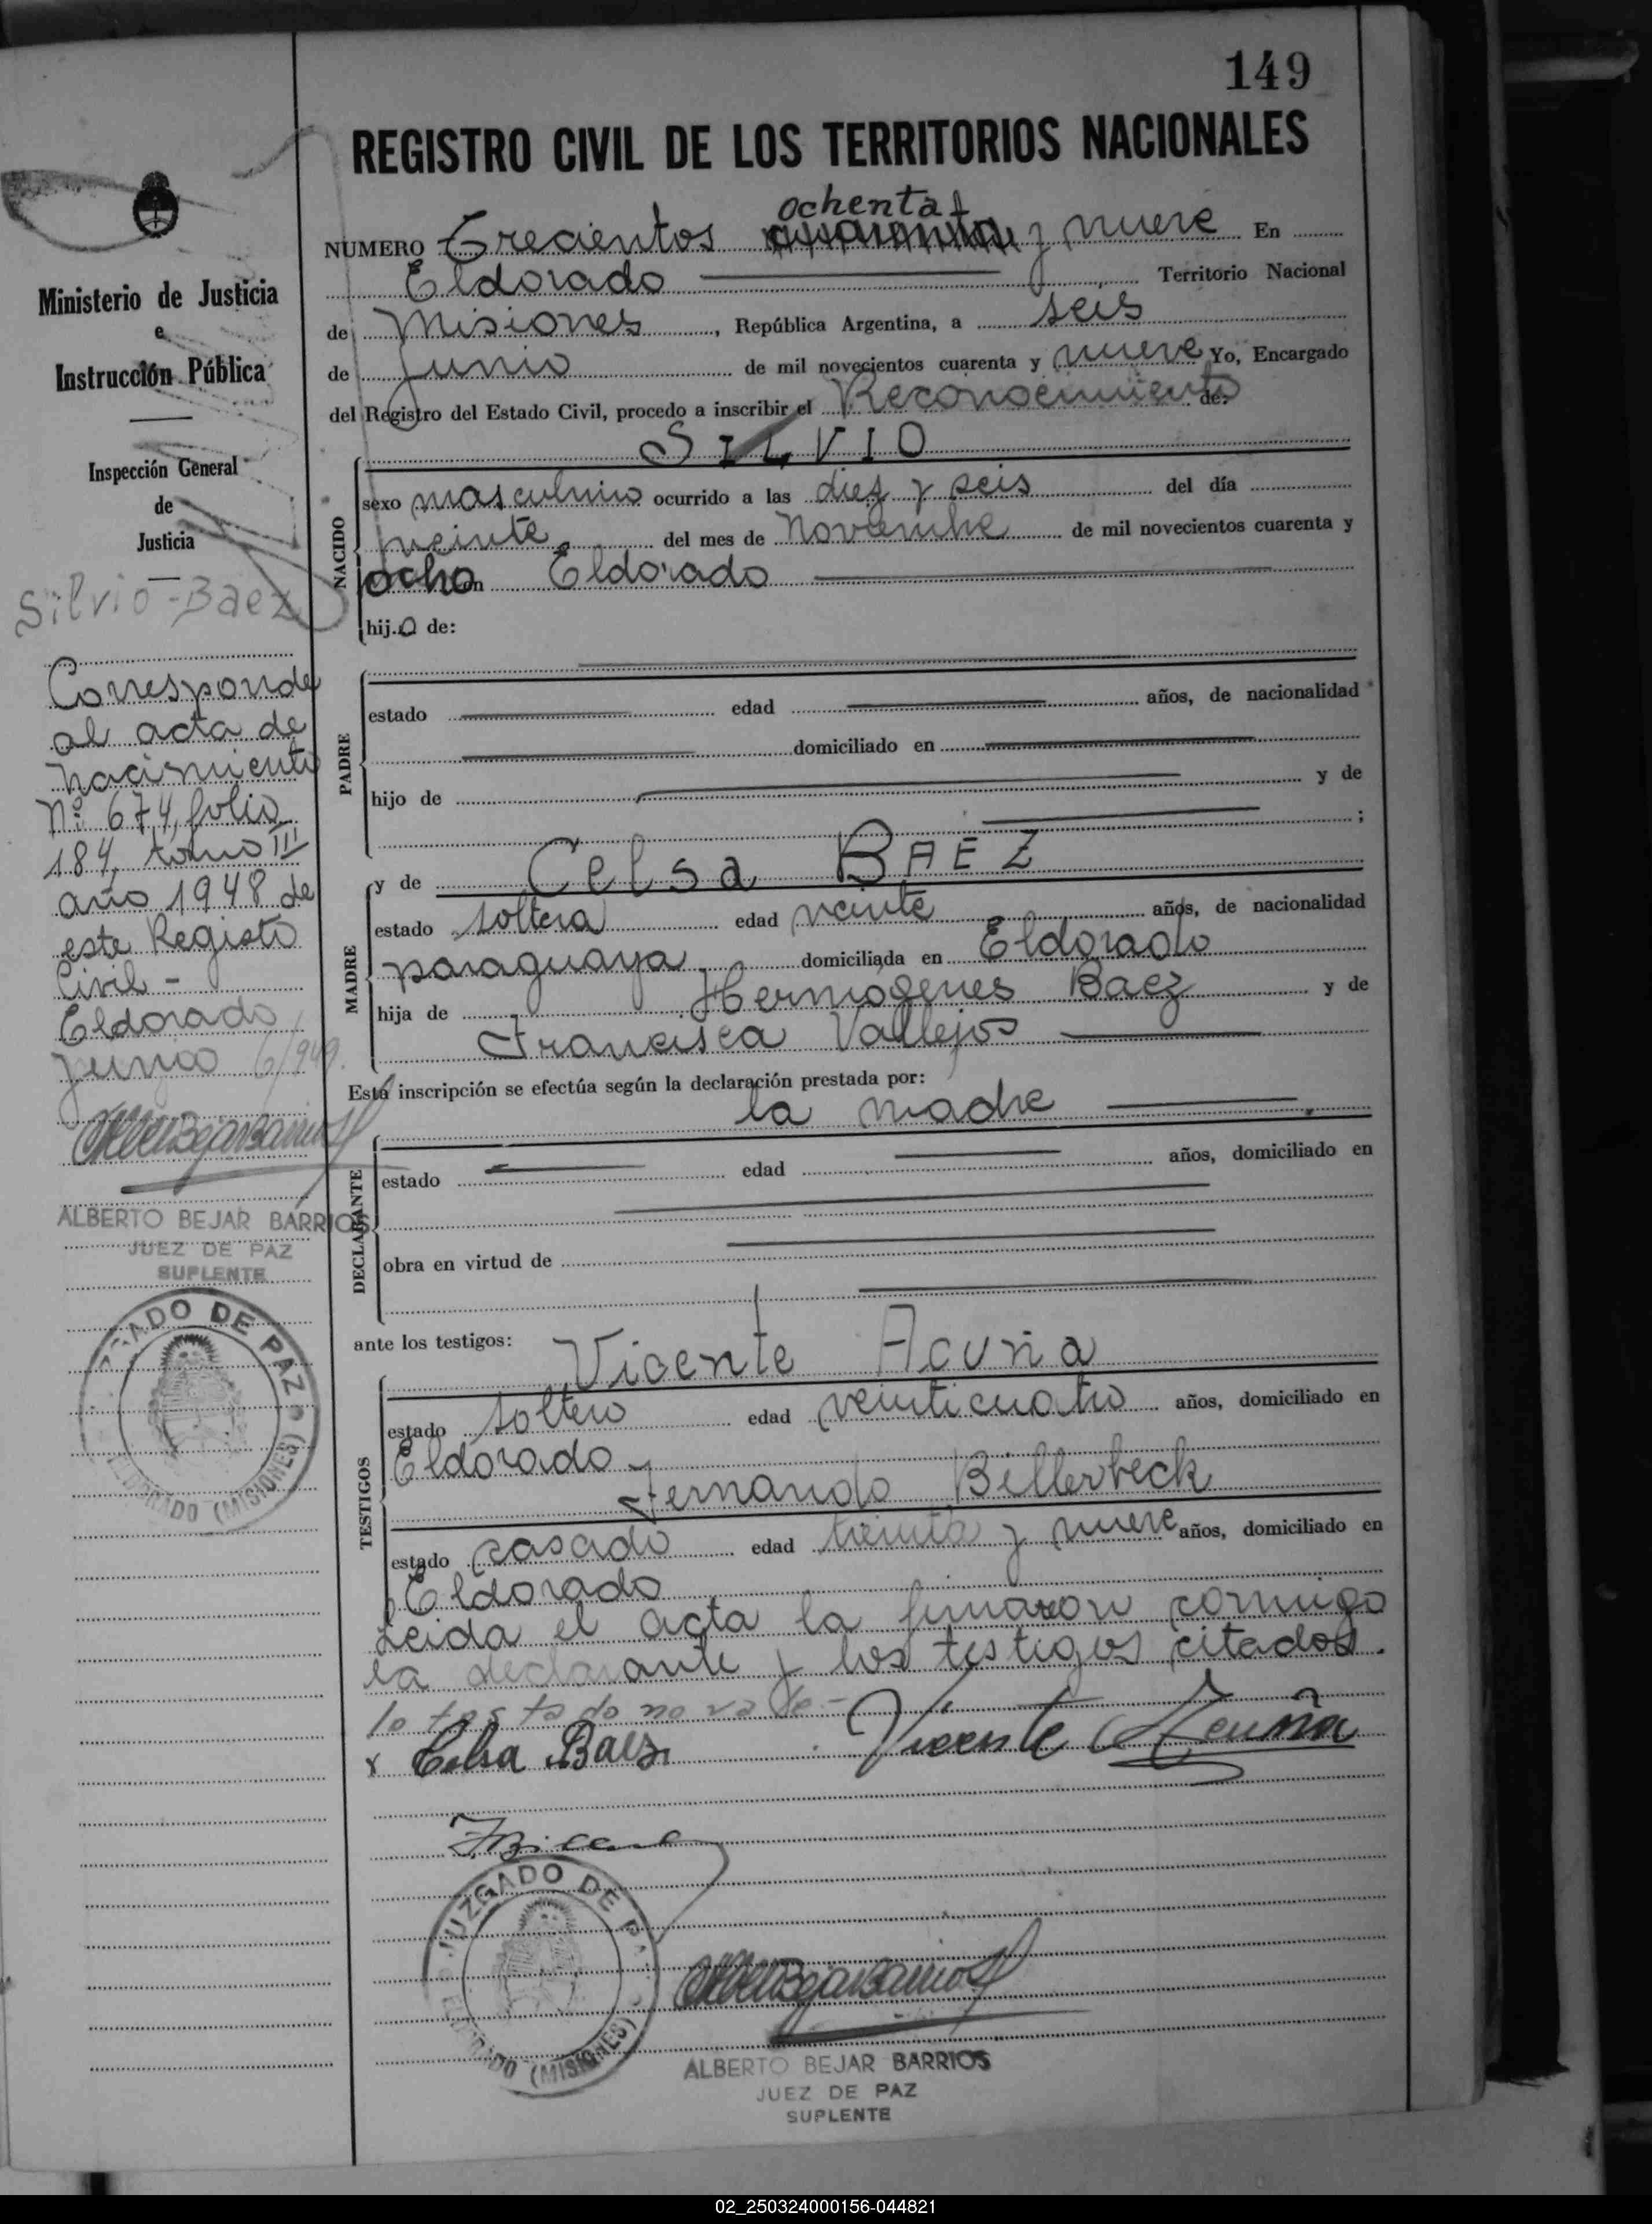 149
REGISTRO CIVIL DE LOS TERRITORIOS NACIONALES
ochenta
NUMERO Trecientos y nueve En
Eldorado Territorio Nacional
de Misiones, República Argentina, a seis
de Junio de mil novecientos cuarenta y nueve Yo, Encargado
del Registro del Estado Civil, procedo a inscribir el Reconocimiento de:
SILVIO
NACIDO
sexo masculino ocurrido a las diez y seis del día
veinte del mes de Noviembre de mil novecientos cuarenta y
ocho en Eldorado
hijo de:
PADRE
estado edad años, de nacionalidad
domiciliado en
hijo de y de
;
y de Celsa BAEZ
MADRE
estado soltera edad veinte años, de nacionalidad
paraguaya domiciliada en Eldorado
hija de Hermógenes Baez y de
Francisca Vallejos
Esta inscripción se efectúa según la declaración prestada por:
la madre
DECLARANTE
estado edad años, domiciliado en
obra en virtud de
ante los testigos: Vicente Acuña
TESTIGOS
estado soltero edad veinticuatro años, domiciliado en
Eldorado y
Fernando Billerbeck
estado casado edad treinta y nueve años, domiciliado en
Eldorado
Leida el acta la firmaron conmigo
la declarante y los testigos citados.
lo testado no vale-
x Celsa Baez Vicente Acuña
JUZGADO DE PAZ
ELDORADO (MISIONES)
ALBERTO BEJAR BARRIOS
JUEZ DE PAZ
SUPLENTE
Ministerio de Justicia
e
Instrucción Pública
Inspección General
de
Justicia
Silvio-Baez
Corresponde
al acta de
nacimiento
Nº 674, folio
184, tomo III
año 1948 de
este Registro
Civil -
Eldorado
Junio 6/949.
ALBERTO BEJAR BARRIOS
JUEZ DE PAZ
SUPLENTE
JUZGADO DE PAZ
ELDORADO (MISIONES)
02_250324000156-044821